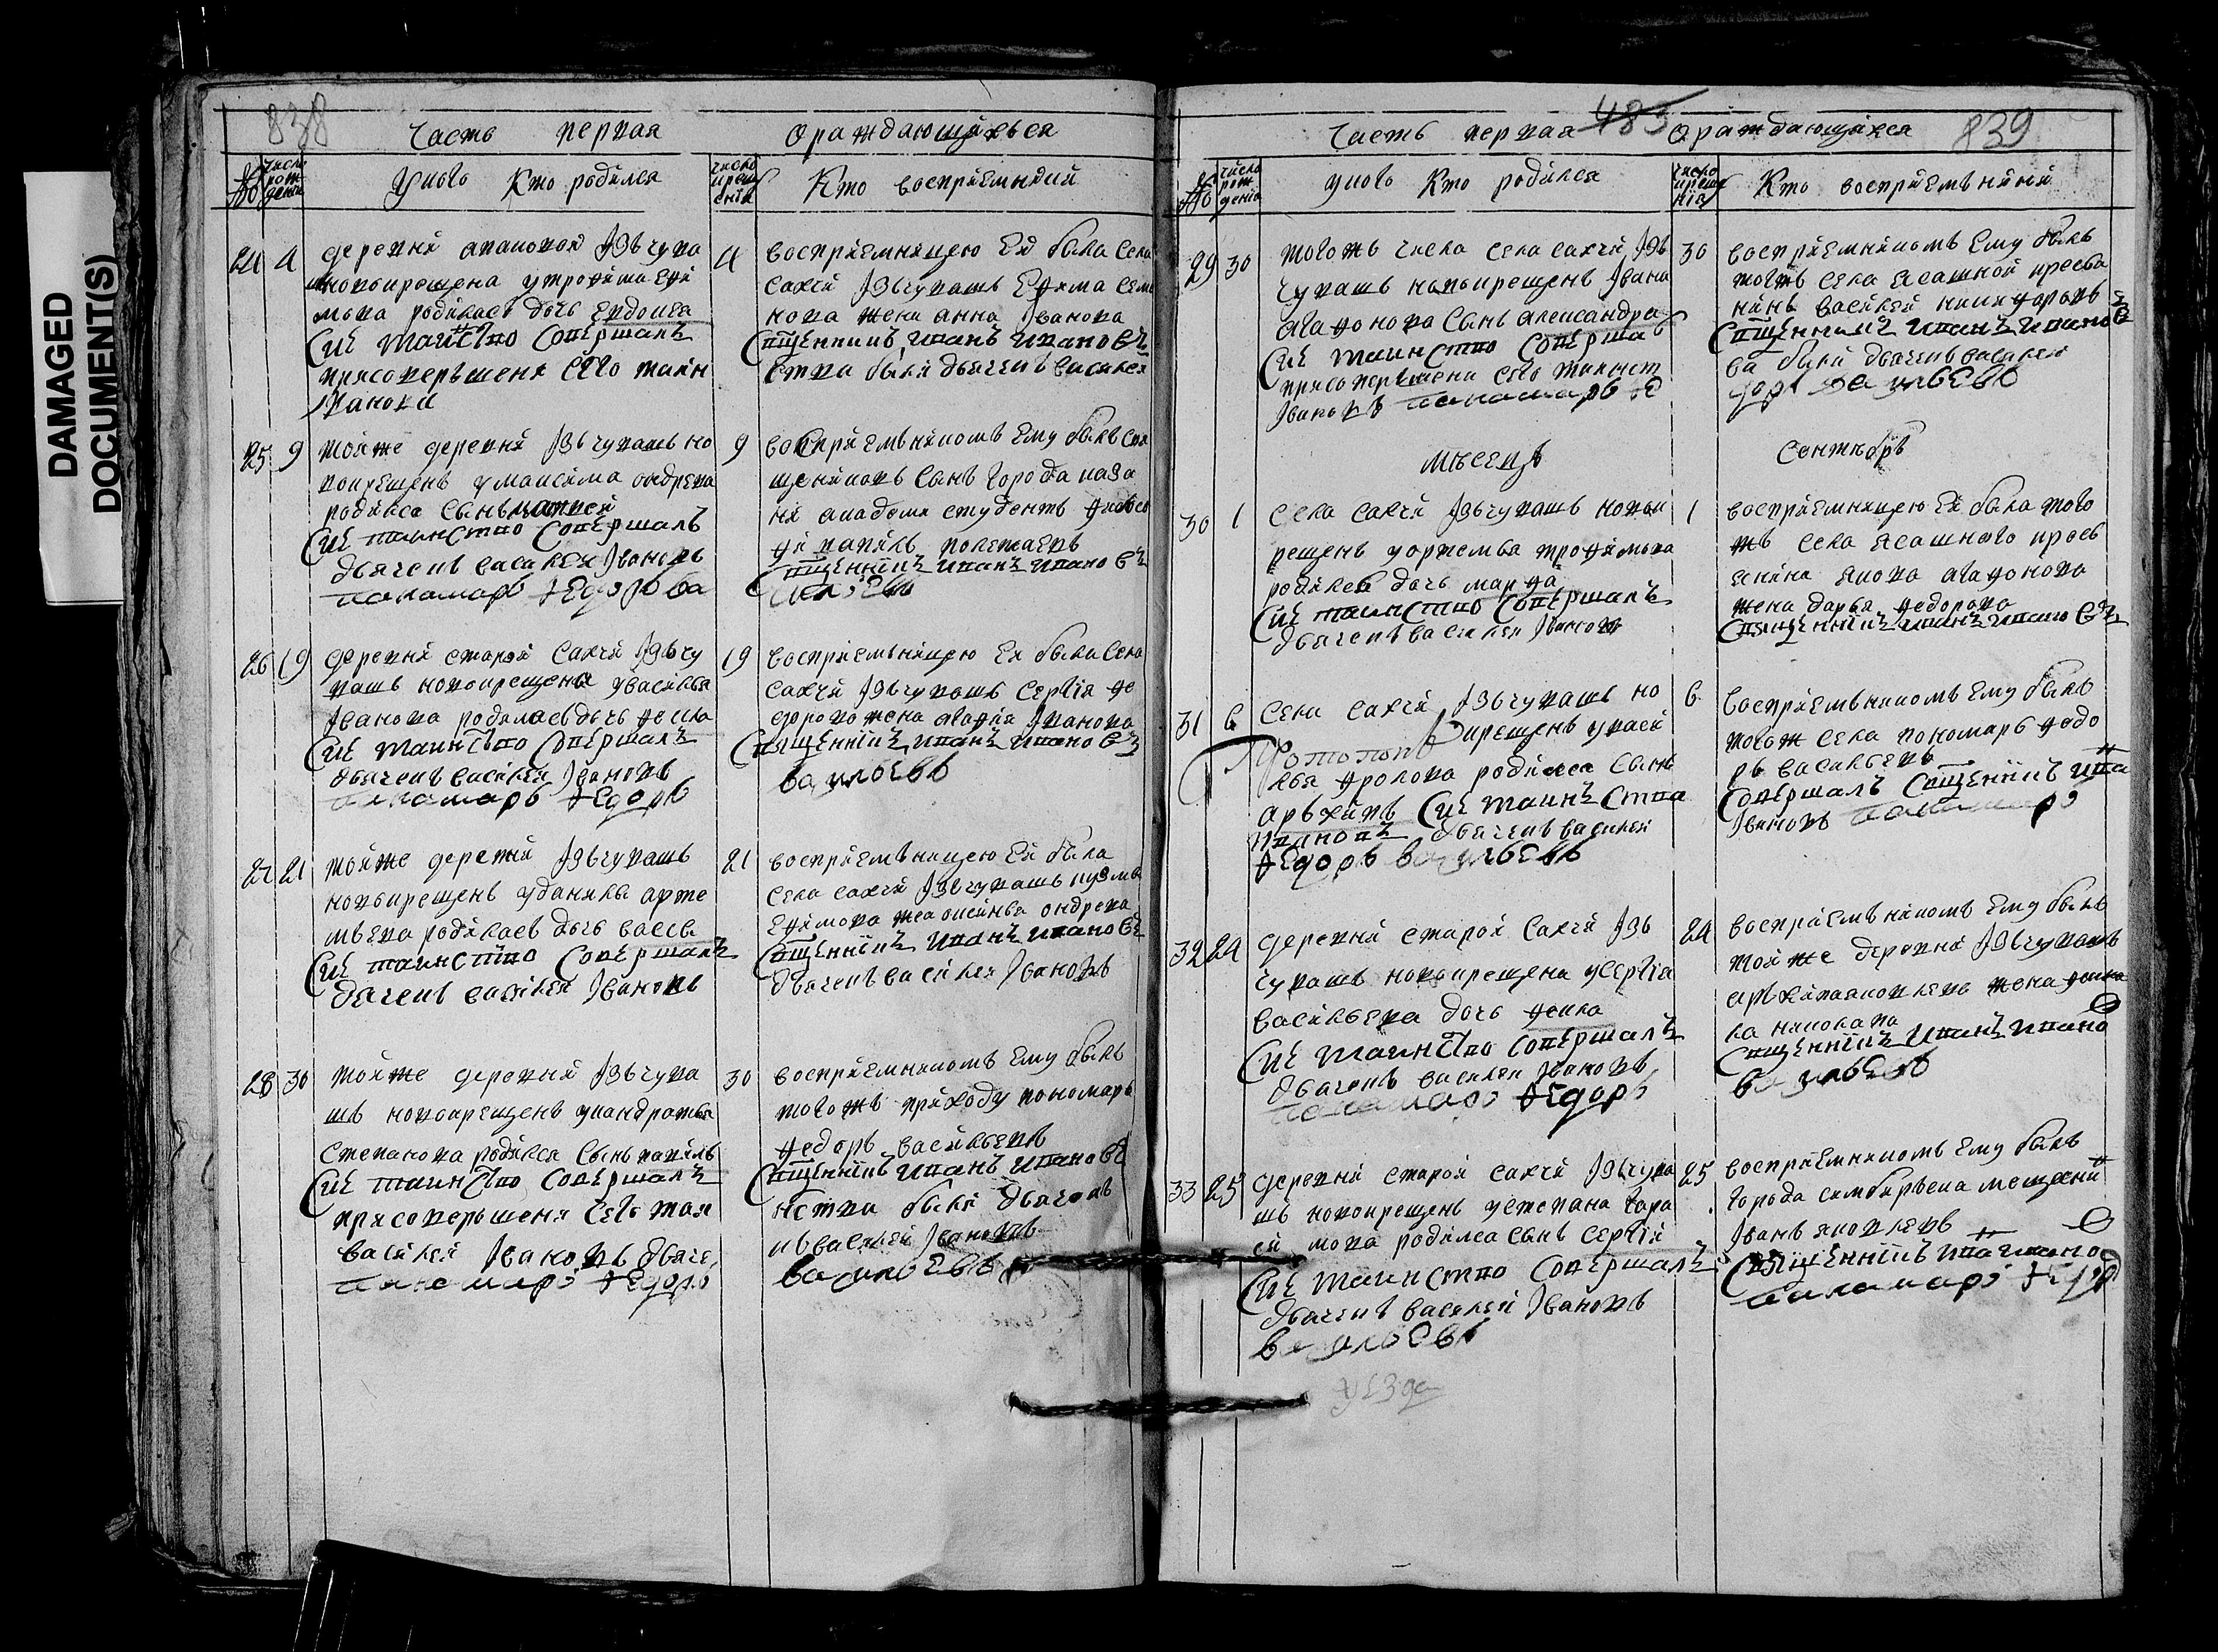 DAMAGED
DOCUMENT(S)
838
Часть первая о раждающихься
№
число рождения
У ково Кто родился
число крещения
Кто восприемники
24 4 деревни изьчува
новокрещена у трофима
родилась дочь евдокея
Сие таинство Совершалъ
присовершени сего таин
4 восприемницею ей была села
сакчи изьчувашъ ефима семе
нова жена анна иванова
Священникъ иванъ ивановъ
ства были дьячекъ василей
25 9 тойже деревни изьчувашъ но
вокрещенъ у максима ондреева
родился сынъ матвей
Сие таинство Совершалъ
дьячекъ василей ивановъ
панамарь Федоръ ва
9 восприемникомъ ему былъ свя
щениковъ сынъ города каза
ни академи студентъ
Священникъ иванъ ивановъ
сильевъ
26 19 деревни старой сакчи изьчу
вашъ новокрещена у василья
иванова родилась дочь фекла
Сие таинство Совершалъ
дьячекъ василей ивановъ
панамарь Федоръ
19 восприемницею ей была села
сакчи изьчувашъ сергея фе
дорова жена агафия иванова
Священникъ иванъ ивановъ
васильевъ
27 21 тойже деревни изьчувашъ
новокрещенъ у данилы арте
мьева родилась дочь васса
Сие таинство Совершалъ
дьячекъ василей ивановъ
21 восприемницею ей была
села сакчи изьчувашъ кузмы
ефимова жена аксинья ондреева
Священникъ иванъ ивановъ
дьячекъ василей ивановъ
28 30 тойже деревни изьчува
шъ новокрещенъ у кандратья
степанова родился сынъ
Сие таинство Совершалъ
присовершени сего таи
василей ивановъ дьяче
панамарь Федоръ
30 восприемникомъ ему былъ
тогожъ приходу пономарь
федоръ васильевъ
Священникъ иванъ ивановъ
нства были дьячекъ
василей ивановъ
васильевъ
483
839
Часть первая о раждающихся
№
число рождения
У ково Кто родился
число крещения
Кто восприемники
29 30 тогожъ числа села сакчи изь
чувашъ новокрещенъ ивана
агафонова сынъ александра
Сие таинство Соверша
присовершени сего таинст
ивановъ панамарь Фе
30 восприемникомъ ему былъ
тогожъ села ясашной кресья
нинъ василей никифоровъ
Священникъ иванъ ивановъ
ва были дьячекъ василей
доръ васильевъ
месецъ Сентябрь
30 1 села сакчи изьчувашъ новок
рещенъ у артемья трофимова
родилась дочь марфа
Сие таинство Совершалъ
дьячекъ василей ивановъ
1 восприемницею ей была того
жъ села ясашного кресь
янина якова агафонова
жена дарья федорова
Священникъ иванъ ивановъ
31 6 села сакчи изьчувашъ но
вокрещенъ у васи
Протопопъ
лья фролова родился сынъ
архипъ Сие таинъства
ивановъ дьячекъ василей
Федоръ васильевъ
6 восприемникомъ ему былъ
тогож села пономарь федо
ръ васильевъ
Совершалъ Священникъ иванъ
ивановъ панамарь
32 24 деревни старой сакчи изь
чувашъ новокрещена у сергия
васильева дочь фекла
Сие таинство Совершалъ
дьячекъ василей ивановъ
панамарь Федоръ
24 восприемникомъ ему былъ
той же деревни изьчувашъ
жена
Священникъ иванъ ивановъ
васильевъ
33 25 деревни старой сакчи изьчува
шъ новокрещенъ у степана гара
си мова родился сынъ сергий
Сие таинство Совершалъ
дьячекъ василей ивановъ
васильевъ
25 восприемникомъ ему былъ
города симбирьска мещанинъ
иванъ яковлевъ
Священникъ иванъ ивановъ
панамарь Федоръ
уезда